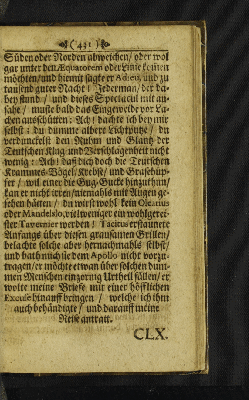 ( 431 )
Süden oder Norden abweichen / oder wol
gar unter den Æquatorem oder Linie
möchten / und hiemit sagte er Adieu, und zu
tausend guter Nacht! Jederman / der da-
bey stund / und dieses Spectacul mit an-
sahe / muste bald das Eingeweide vor La-
chen ausschütten: Ach! dachte ich bey mir
selbst: du dumme alberne Lichtputze / du
verdunckelst den Ruhm und Glantz der
Teutschen Klug- und Verschlagenheit nicht
wenig: Ach! daß dich doch die Teutschen
Krammets-Vögel / Krebse / und Grasehüp-
fer / weil einer die Gug-Gucke hinzuthun /
kan er nicht irren / niemahls mit Augen ge-
sehen hätten / du wirst wohl kein Olearius
oder Mandelslo, viel weniger ein wohlgerei-
ster Tavernier werden! Tacitus erstaunete
Anfangs über diesen grausamen Grillen /
belachte solche aber hernachmahls selbst /
und bath mich sie dem Apollo nicht vorzu-
tragen / er möchte etwan über solchen dum-
men Menschen ein zornig Urtheil fällen / er
wolte meine Briefe mit einer höfflichen
Excuse hinauff bringen / welche ich ihm
auch behändigte / und darauff meine
Reise antratt.
CLX.